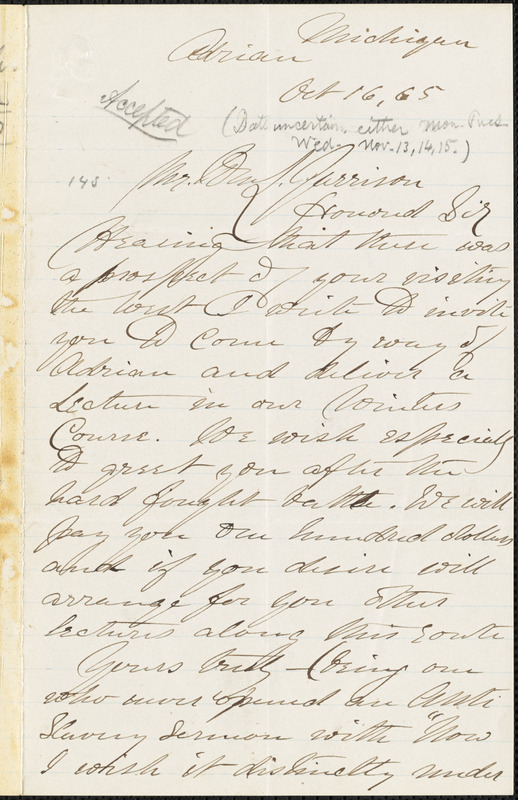 Michigan
Adrian
Oct 16, 65
Accepted
(Date uncertain, either Mon. Tues.
Wed. Nov. 13, 14, 15.)
145
Mr. Garrison
Honored Sir
Hearing that there was
a prospect of your visiting
the West I write to invite
you to come by way of
Adrian and deliver a
Lecture in our Winters
Course. We wish especially
to greet you after the
hard fought battle. We will
pay you one hundred dollars
and if you desire will
arrange for you other
lectures along this route
Yours truly — (being one
who never opened an Anti
Slavery Sermon with "Now
I wish it distinctly under